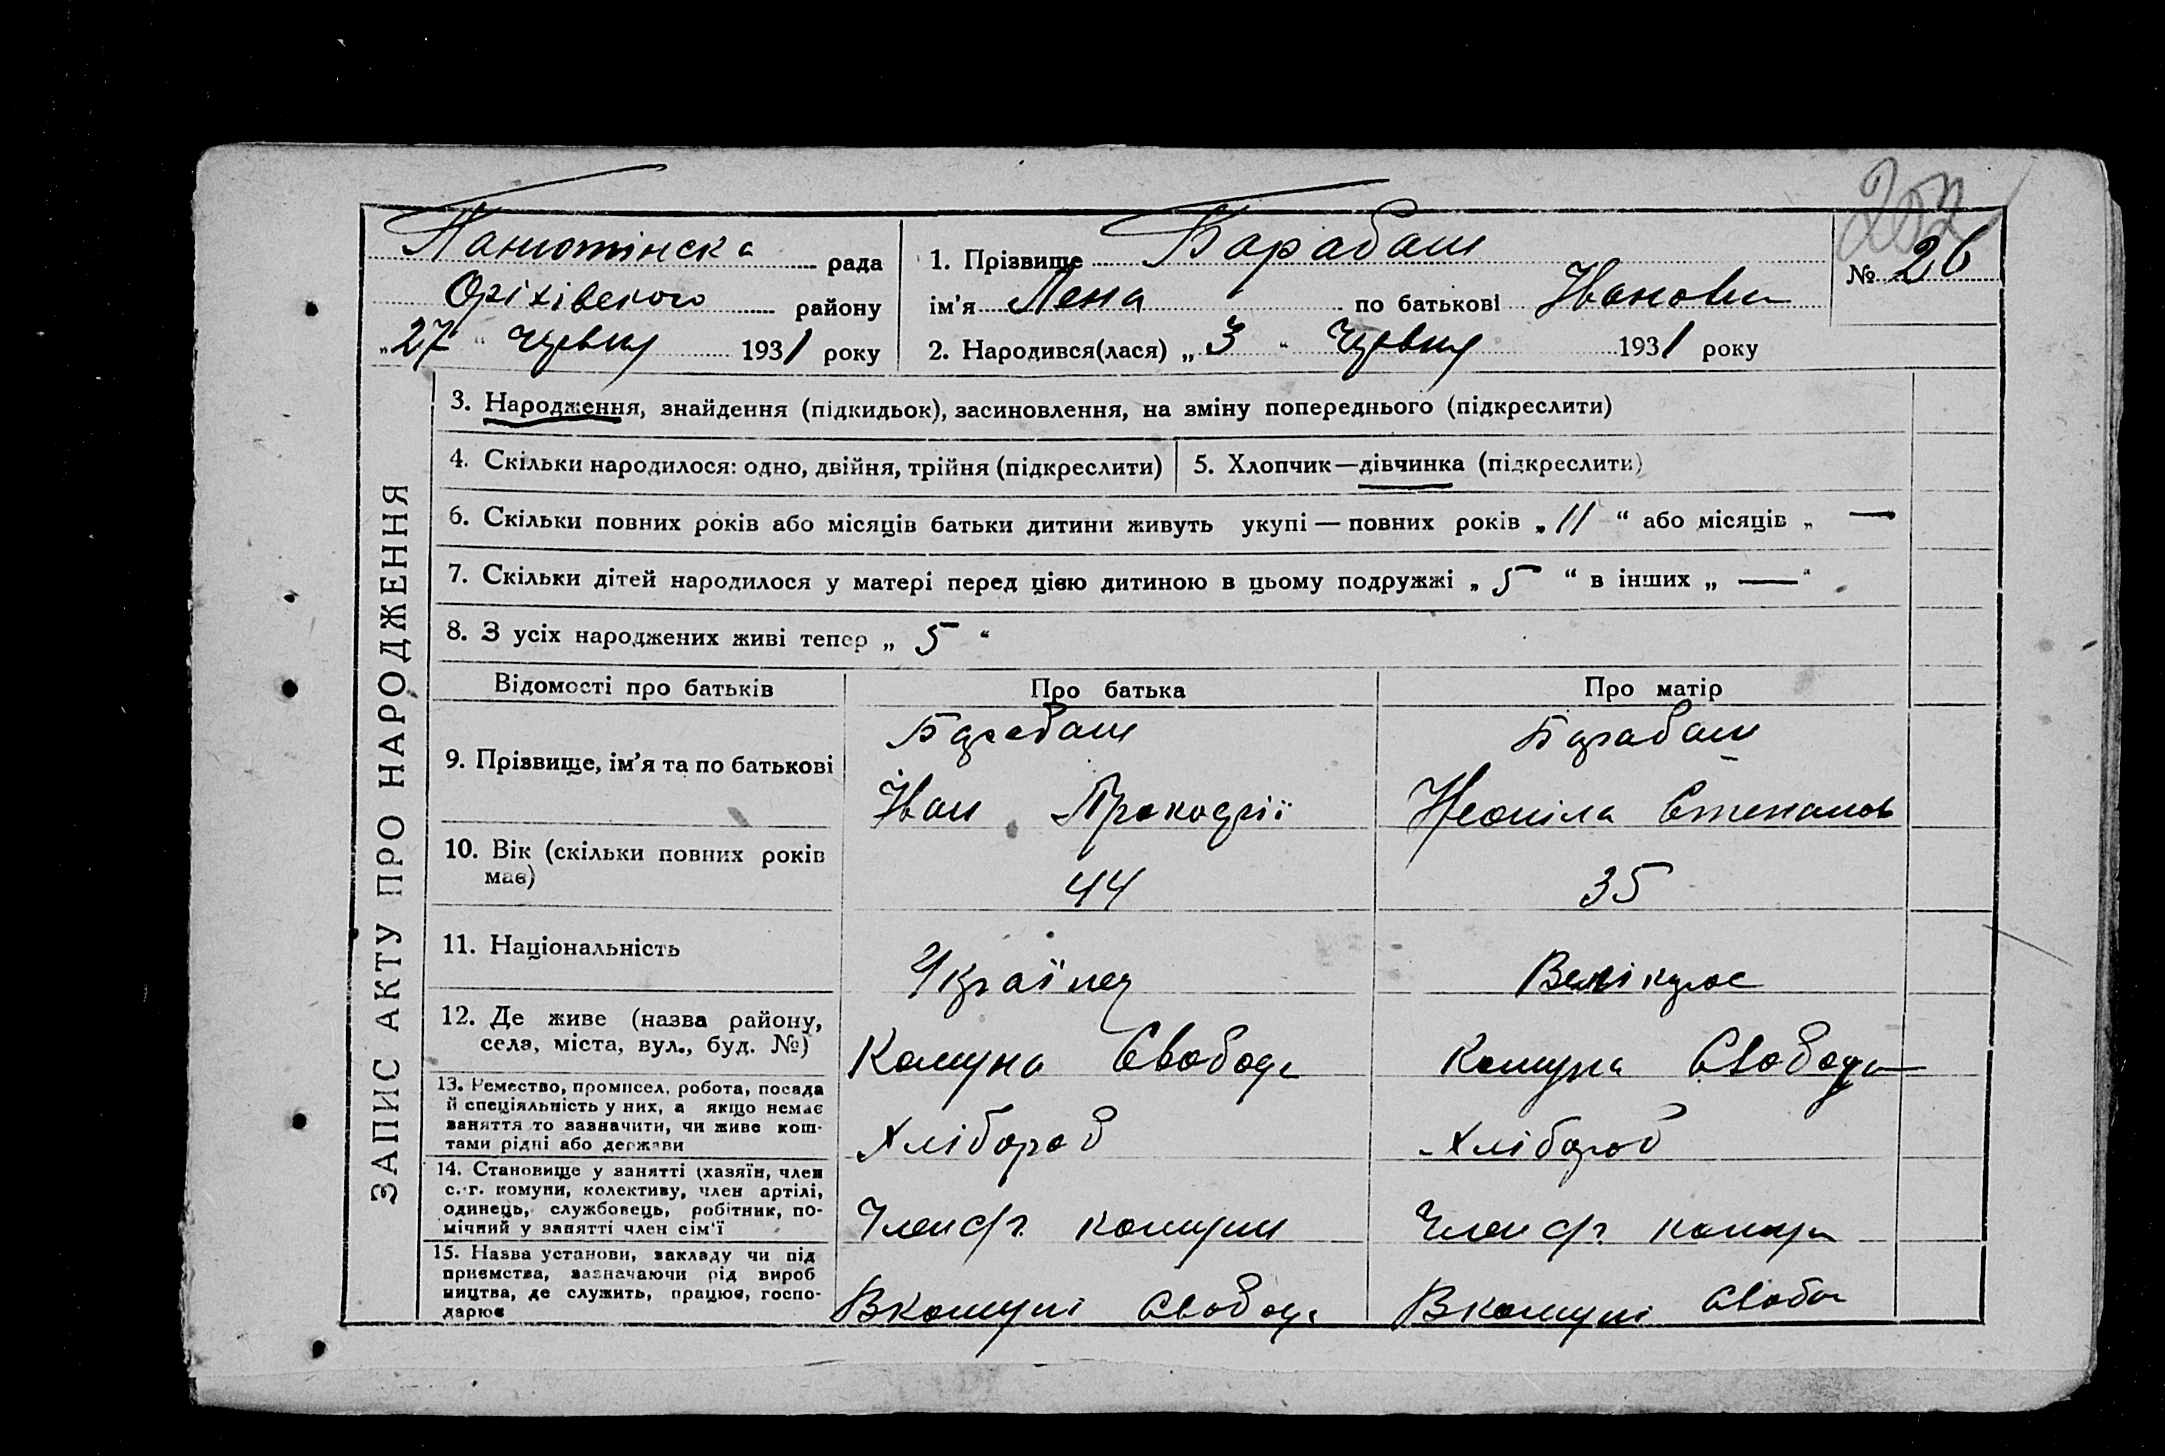 252
Панютінска рада
1. Прізвище Барабаш
№ 26
Оріхівского району
ім’я Лена по батькові Іванови
„27“ Червня 1931 року
2. Народився(лася) „3“ Червня 1931 року
ЗАПИС АКТУ ПРО НАРОДЖЕННЯ
3. Народження, знайдення (підкидьок), засиновлення, на зміну попереднього (підкреслити)
4. Скільки народилося: одно, двійня, трійня (підкреслити)
5. Хлопчик—дівчинка (підкреслити)
6. Скільки повних років або місяців батьки дитини живуть укупі — повних років „11“ або місяців „ —
7. Скільки дітей народилося у матері перед цією дитиною в цьому подружжі „5“ в інших „ — “
8. З усіх народжених живі тепер „5“
Відомості про батьків
Про батька
Про матір
9. Прізвище, ім’я та по батькові
Барабаш
Іван
Барабаш
Степанов
10. Вік (скільки повних років
має)
44
35
11. Національність
Українец
Велікорос
12. Де живе (назва району,
села, міста, вул., буд. №)
Комуна Свобода
Комуна Свобода
13. Ремество, промисел, робота, посада
й спеціяльність у них, а якщо немає
заняття то зазначити, чи живе кош-
тами рідні або держави
Хлібороб
Хлібороб
14. Становище у занятті (хазяїн, член
с.-г. комуни, колективу, член артілі,
одинець, службовець, робітник, по-
мічний у занятті член сім’ї
Член с/г. комуни
Член с/г. комун
15. Назва установи, закладу чи під
приємства, зазначаючи рід вироб
ництва, де служить, працює, госпо-
дарює
В комуні Свобода
В комуні Свобо